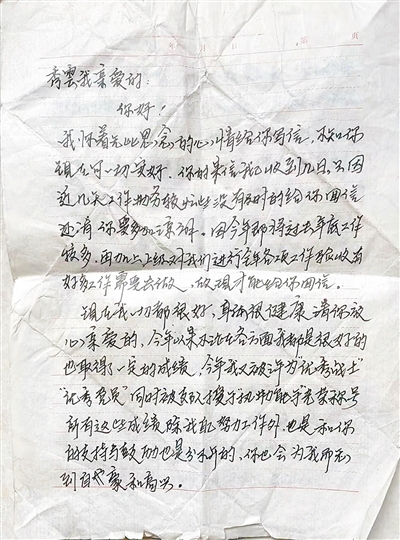 年 月 日 第 页
秀雲我亲爱的：
你好！
我怀着无比思念的心情给你写信，不知你
现在可一切安好。你的来信我已收到几日，只因
近几天工作 些没有及时的给你回信
还请你要多加谅解。因今年即将过去年底工作
较多，再加上上级对我们进行全年各项工作验收有
好多工作需要去做，故现才能给你回信。
现在我一切都很好，身体很健康请你放
心亲爱的，今年以来不论在各方面我都是很好的
也取得了一定的成绩，今年我又被评为“优秀战士”
“优秀党员”同时被支队授予 能手”光荣称号
所有这些成绩除我自己努力工作外，也是和你
的支持与鼓励也是分不开的，你也会为我而感
到自豪和高兴。